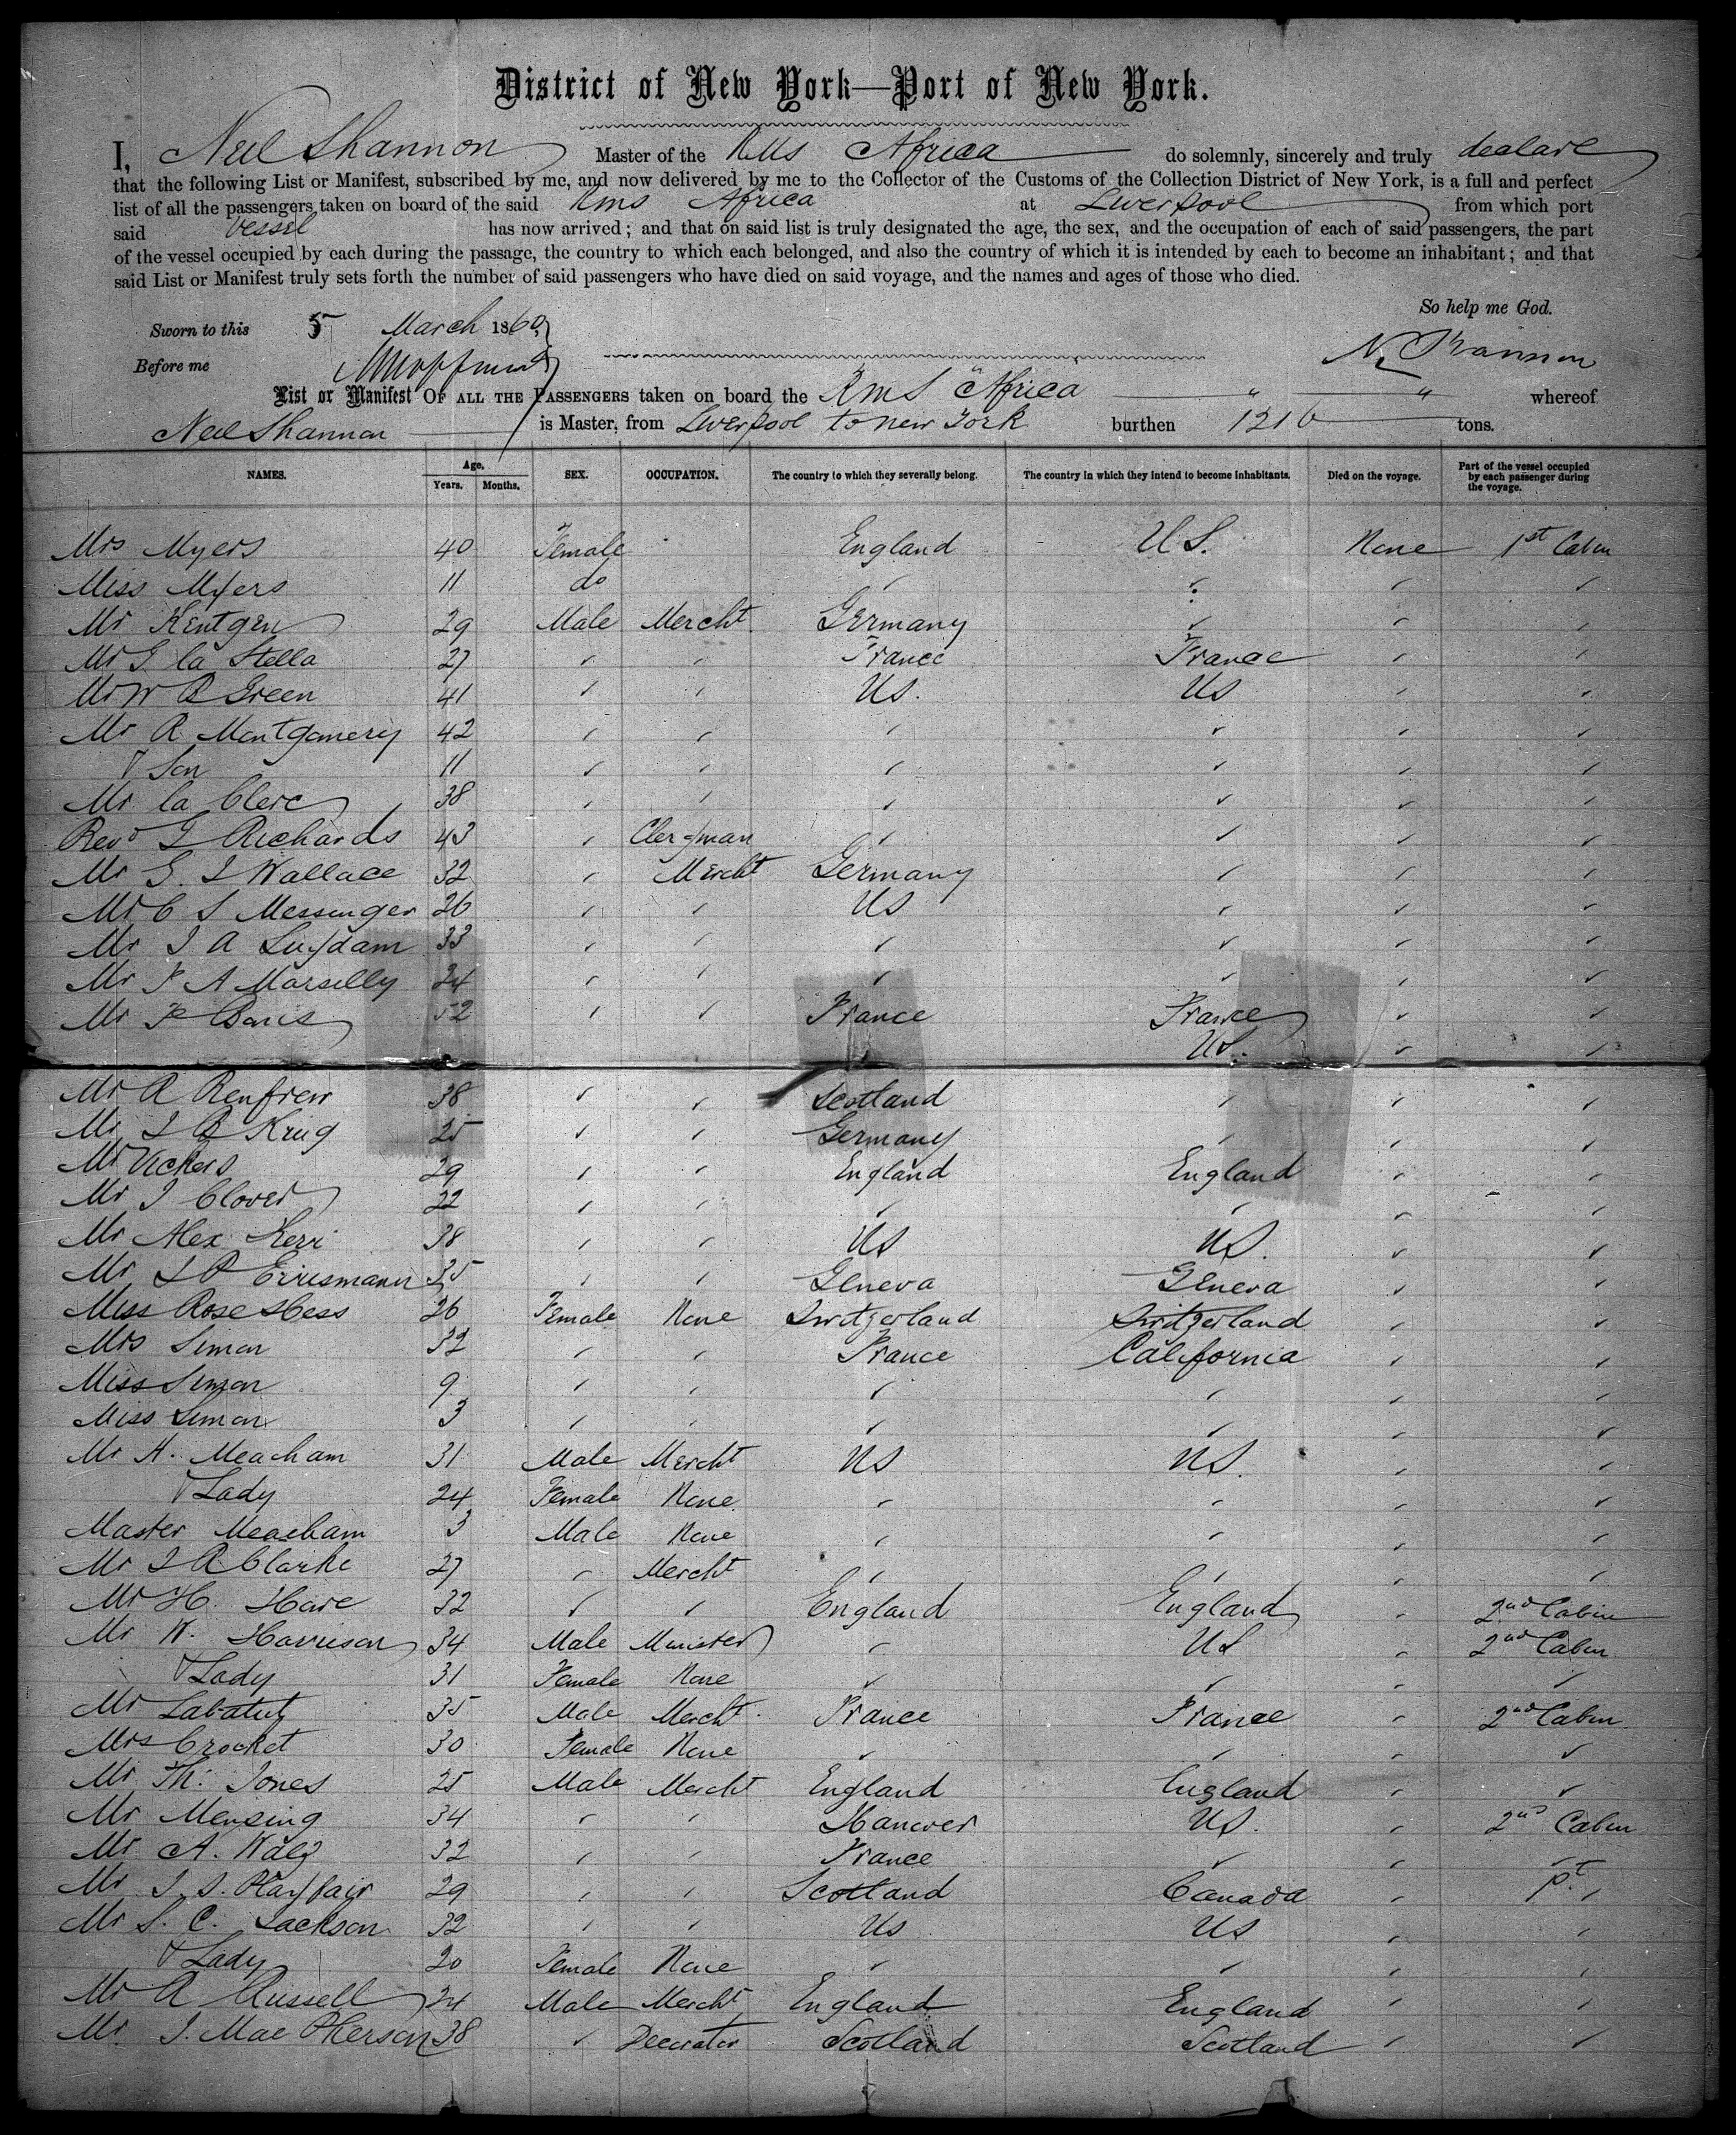 District of New York—Port of New York.
I, Neil Shannon Master of the RMS Africa do solemnly, sincerely and truly declare
that the following List or Manifest, subscribed by me, and now delivered by me to the Collector of the Customs of the Collection District of New York, is a full and perfect
list of all the passengers taken on board of the said RMS Africa at Liverpool from which port
said Vessel has now arrived; and that on said list is truly designated the age, the sex, and the occupation of each of said passengers, the part
of the vessel occupied by each during the passage, the country to which each belonged, and also the country of which it is intended by each to become an inhabitant; and that
said List or Manifest truly sets forth the number of said passengers who have died on said voyage, and the names and ages of those who died.
So help me God.
Sworn to this 5 March 1860
N Shannon
Before me
List or Manifest OF ALL THE PASSENGERS taken on board the RMS Africa " " whereof
Neil Shannon is Master, from Liverpool to New York burthen 1216 tons.
NAMES. Age. Years. Months. SEX. OCCUPATION. The country to which they severally belong. The country in which they intend to become inhabitants. Died on the voyage. Part of the vessel occupied by each passenger during the voyage.
Mrs Myers 40 Female England US. None 1st Cabin
Miss Myers 11 do
Mr Kentgen 29 Male Mercht Germany
Mr G la Stella 27 France France
Mr W B Green 41 US. US
Mr R Montgomery 42
& Son 11
Mr la Clerc 38
Revd G Richards 43 Clergman
Mr G. I Wallace 32 Mercht Germany
Mr C S Messenger 26 US
Mr J A Suydam 33
Mr F A Marselly 24
Mr F Baris 52 France France
US.
Mr A Renfrew 38 Scotland
Mr J B Krug 25 Germany
Mr Vickers 29 England England
Mr J Clover 22
Mr Alex Kerr 38 US US.
Mr 35 Geneva Geneva
Miss Rose Hess 26 Female None Switzerland Switzerland
Mrs Simon 32 France California
Miss Simon 9
Miss Simon 3
Mr H. Meacham 31 Male Mercht US US.
& Lady 24 Female None
Master Meacham 3 Male None
Mr J R Clarke 27 Mercht
Mr H. Hare 32 England England 2nd Cabin
Mr W. Harrison 34 Male Minister US 2nd Cabin
& Lady 31 Female None
Mr Labatut 35 Male Mercht France France 2nd Cabin
Mrs Crocket 30 Female None
Mr Th. Jones 25 Male Mercht England England
Mr Mensing 34 Hanover US. 2nd Cabin
Mr A. Walz 32 France
Mr J. S. Playfair 29 Scotland Canada 1st
Mr S. C. Jackson 32 US US
& Lady 20 Female None
Mr A Russell 24 Male Mercht England England
Mr J. Mac Pherson 38 Decorator Scotland Scotland